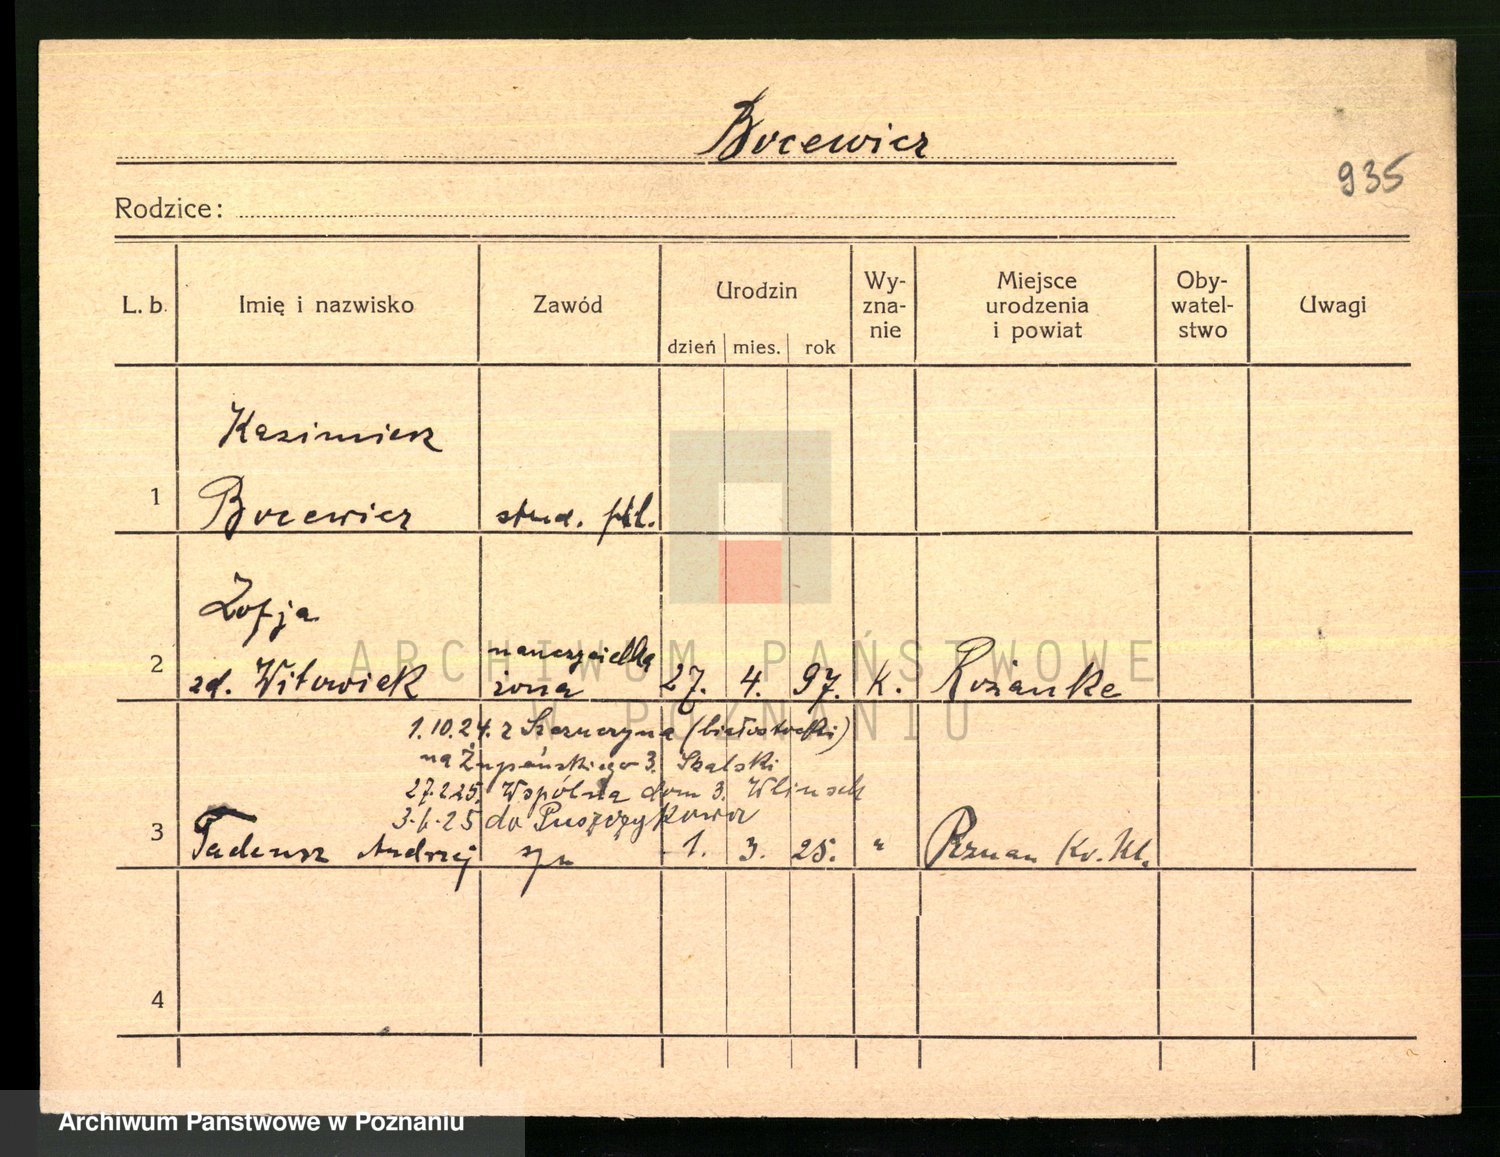 Bocewicz
935
Rodzice:
L. b. Imię i nazwisko Zawód Urodzin Wy- Miejsce Oby- Uwagi
zna- urodzenia watel-
nie i powiat stwo
dzień mies. rok
Kazimierz
1 Bocewicz stud. fil.
Zofja
nauczycielka
2 zd. Witowiek żona 27. 4. 97. k. Różanke
1.10.24. z (białostocki)
na Żupańskiego 3. Szalski
27.2.25. Wspólna dom 3.
do Puszczykowa
3 Tadeusz Andrzej syn 1. 3. 25. " Poznan
4
ARCHIWUM PAŃSTWOWE
W POZNANIU
Archiwum Państwowe w Poznaniu